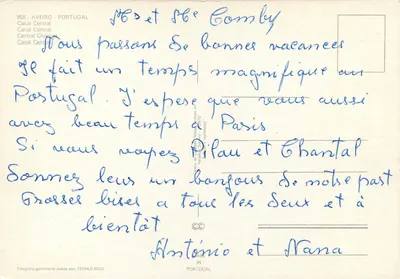 958 - AVEIRO - PORTUGAL
Canal Central
Canal Central
Central Channel
Canal Central
Mr et Me Comby
Nous passons de bonnes vacances
Il fait un temps magnifique au
Portugal. J'espere que vous aussi
avez beau temps à Paris.
Si vous voyez Pilau et Chantal
Donnez leur un bonjous de notre part
Grosses bises a tous les deux et à
bientôt
António et Nana
PORTUGAL